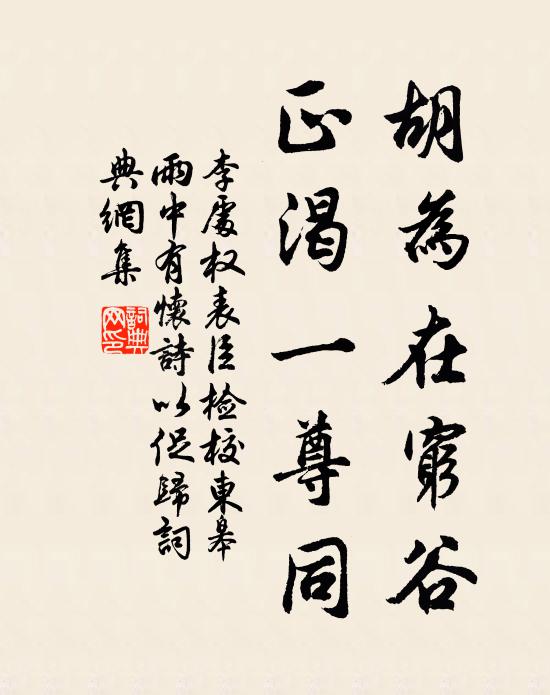 胡為在窮谷
正渴一尊同
李處权表臣檢校東皋
雨中有懷詩以促歸詞
典網集
詞典网印